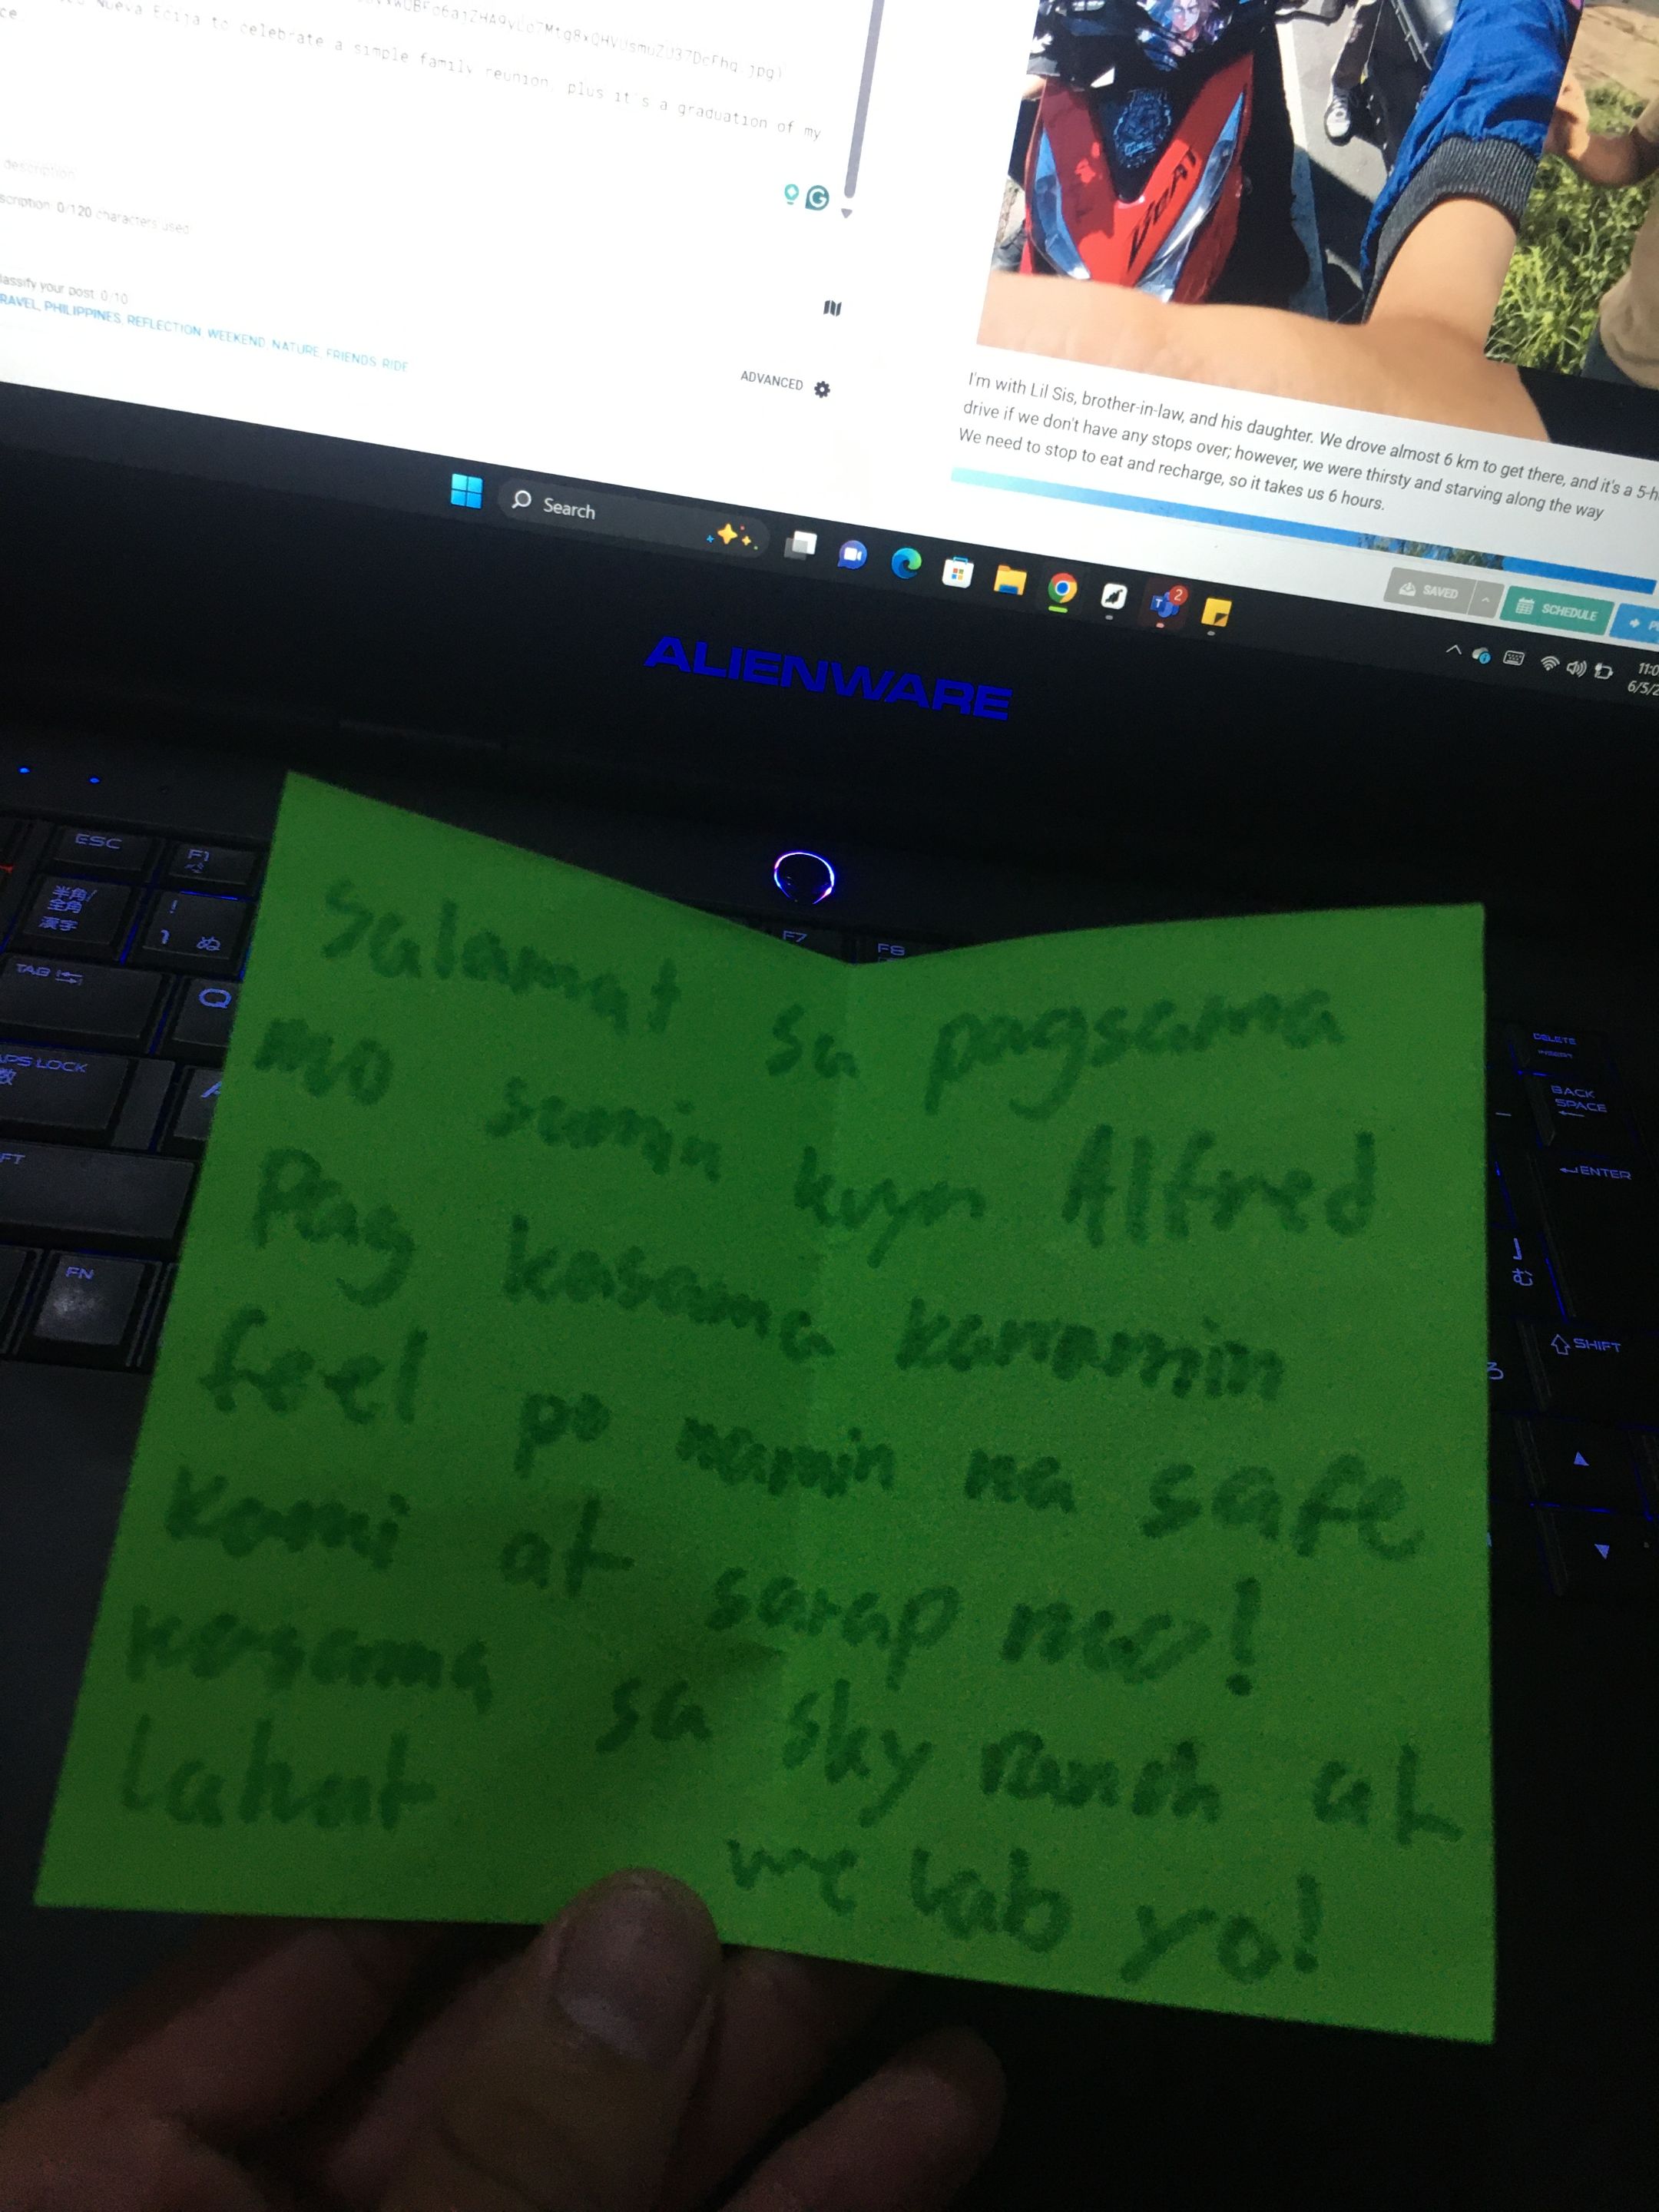 Nueva Ecija to celebrate a simple family reunion, plus it's a graduation of my
description
scription: 0/120 characters used
lassify your post. 0/10
RAVEL, PHILIPPINES, REFLECTION, WEEKEND, NATURE, FRIENDS, RIDE
ADVANCED
I'm with Lil Sis, brother-in-law, and his daughter. We drove almost 6 km to get there, and it's a 5-h
drive if we don't have any stops over; however, we were thirsty and starving along the way
We need to stop to eat and recharge, so it takes us 6 hours.
SAVED
SCHEDULE
Search
2
11:0
6/5/2
ALIENWARE
ESC
F1
F7
F8
半角/
全角
漢字
!
1 ぬ
TAB
Q
APS LOCK
数
FT
FN
DELETE
INSERT
BACK
SPACE
ENTER
む
SHIFT
salamat sa pagsama
mo samin kuya Alfred
Pag kasama kanamin
feel po namin na safe
kami at sarap mo!
kasama sa sky Ranch at
Lahat
we lab yo!